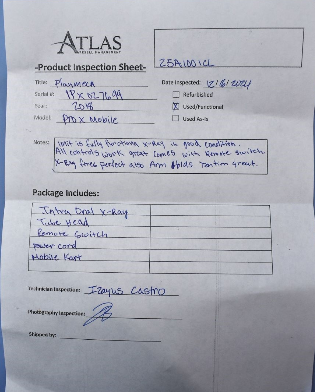 ATLAS
-Product Inspection Sheet-
25A1001CL
Title: Planmeca
Date Inspected: 12/6/2024
Serial #: IPX 027699
Refurbished
Year: 2018
X Used/Functional
Model: ProX Mobile
Used As-Is
Notes: Unit is fully functional X-Ray in good condition.
All controls work great comes with Remote Switch
X-Ray fires perfect also Arm holds position great.
Package Includes:
Intra Oral X-Ray
Tube Head
Remote Switch
Power cord
Mobile Kart
Technician Inspection: Izayus Castro
Photography Inspection:
Shipped by: